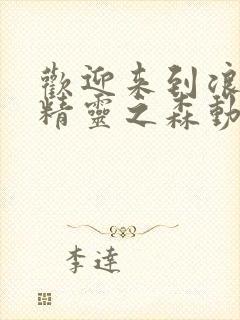 歡迎来到浪
精靈之森動
李達